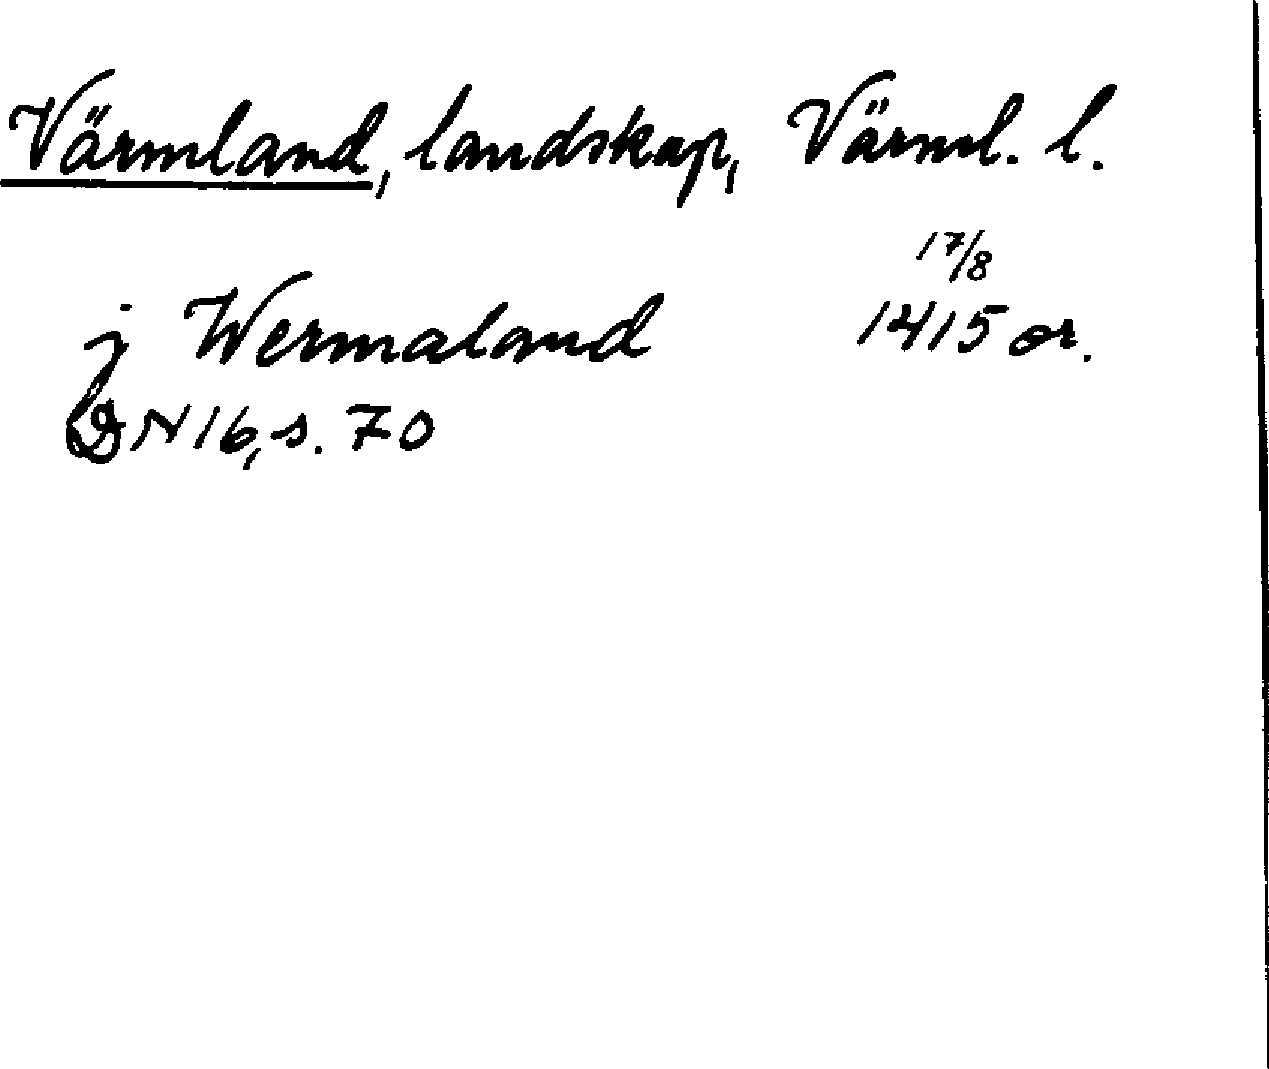 Värmland, landskap, Värml. l.
17/8
j Wermaland 1415 or.
DN 16, s. 70